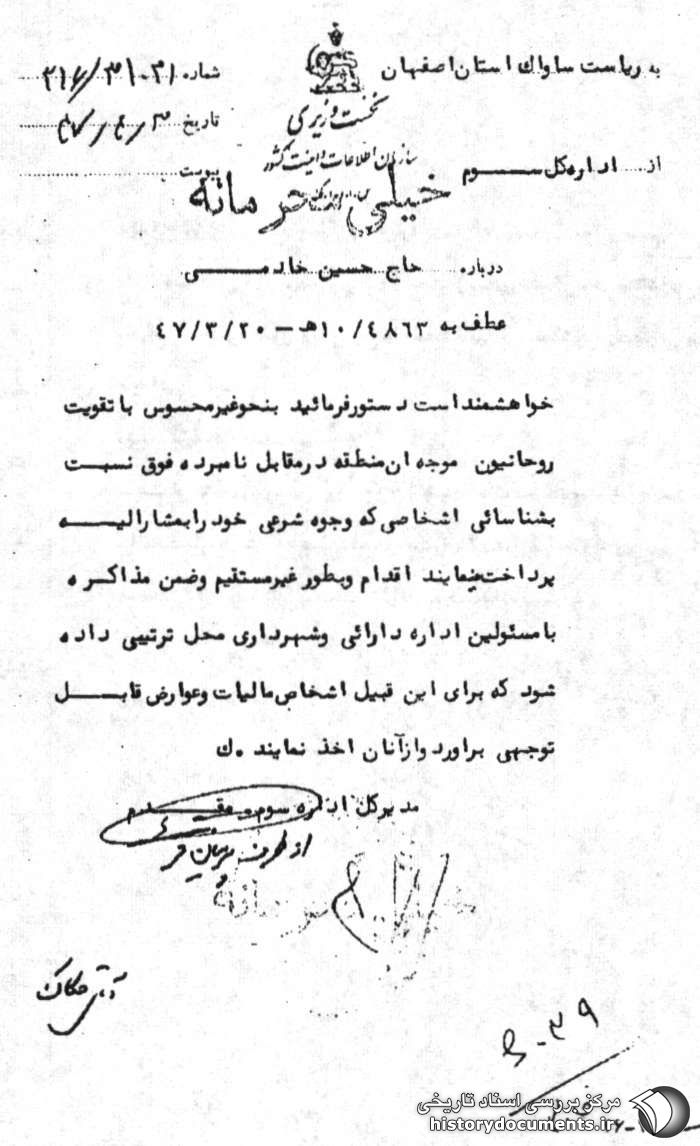 به ریاست ساواک استان اصفهان
شماره ۳۱۶/۳۱۰۳۱
نخست وزیری
تاریخ ۴۷/۴/۳
سازمان اطلاعات و امنیت کشور
از اداره کل سوم
پیوست
خیلی محرمانه
درباره حاج حسین خادمی
عطف به ۱۰/۴۸۶۲ هـ – ۴۷/۳/۲۰
خواهشمند است دستور فرمائید بنحو غیرمحسوس با تقویت
روحانیون موجه ان منطقه در مقابل نامبرده فوق نسبت
بشناسائی اشخاصی که وجوه شرعی خود را بمشارالیه
پرداخت مینمایند اقدام و بطور غیرمستقیم و ضمن مذاکره
با مسئولین اداره دارائی و شهرداری محل ترتیبی داده
شود که برای این قبیل اشخاص مالیات و عوارض قابل
توجهی براورد و از آنان اخذ نمایند . ک
مدیرکل اداره سوم . مقدم
از طرف
۳۹
مرکز بررسی اسناد تاریخی
historydocuments.ir